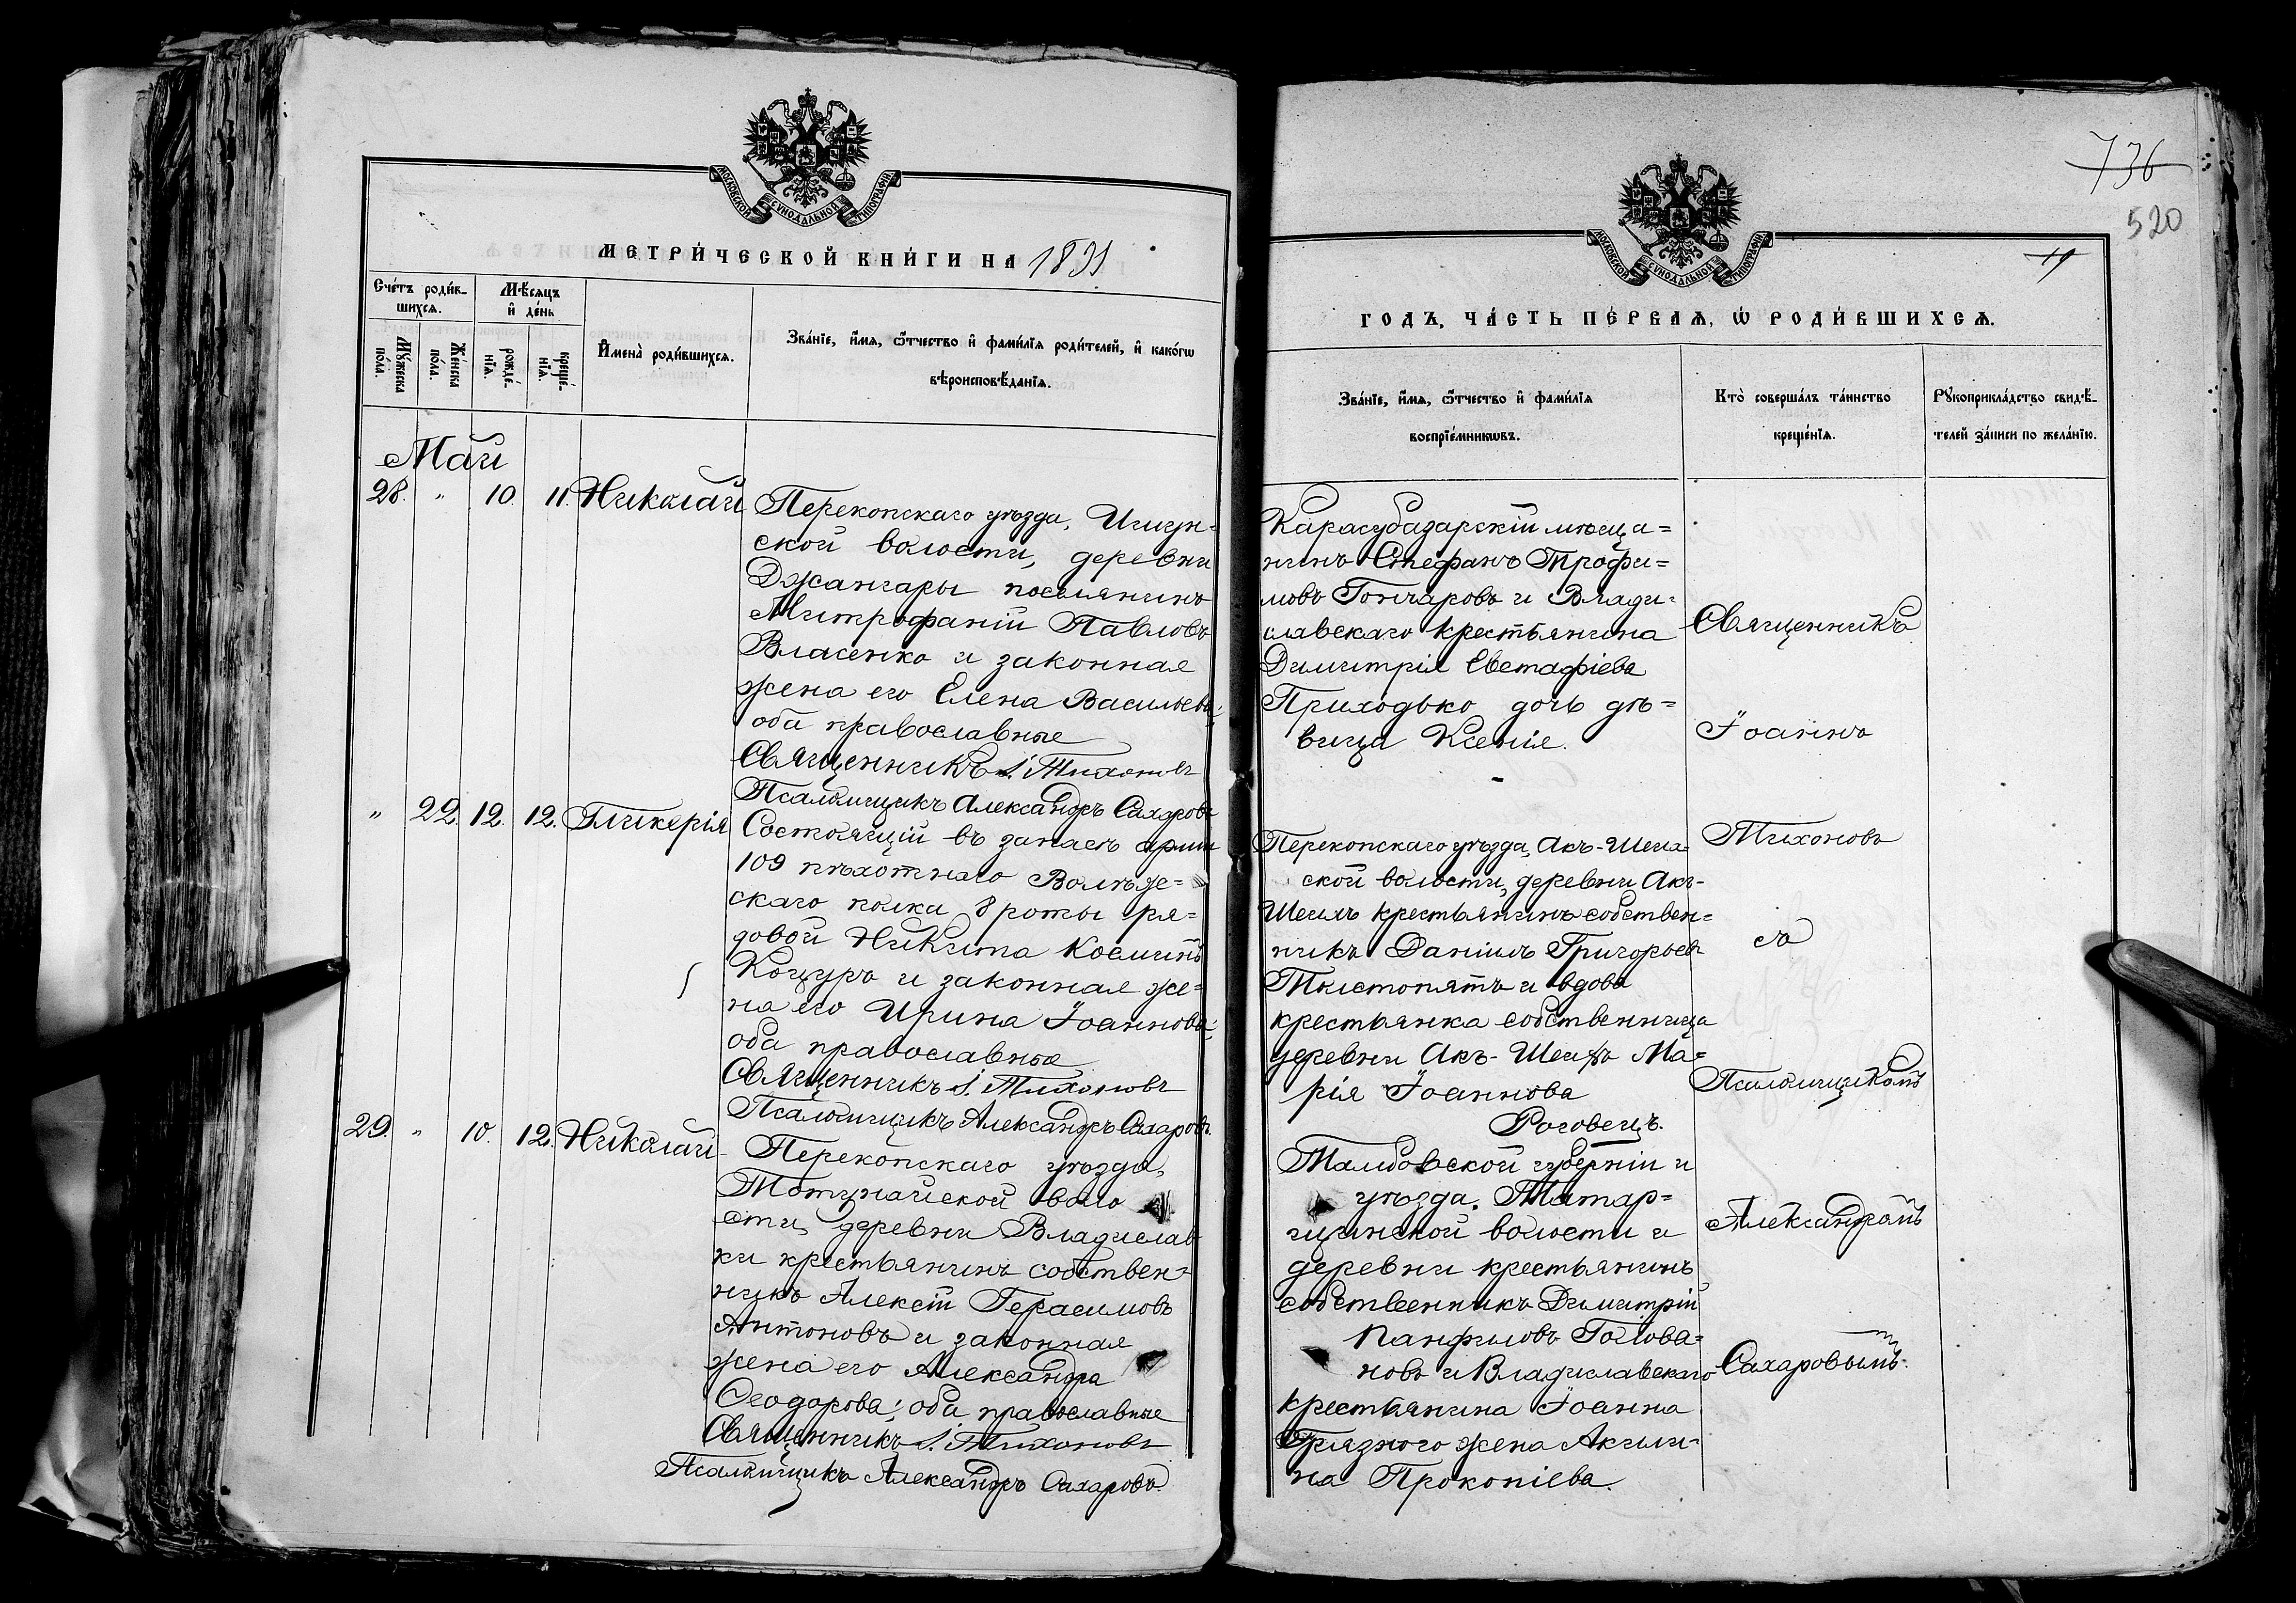 МОСКОВСКОЙ СѴНОДАЛЬНОЙ ТИПОГРАФІИ
МЕТРИ́ЧЕСКОЙ КНИ́ГИ НА 1891
Сче́тъ роди́в-
шихсѧ.
Мѣ́сѧцъ
и҆ де́нь
Мꙋ́жеска
по́ла.
Же́нска
по́ла.
рожде́-
нїѧ.
креще́-
нїѧ.
И҆мена̀ роди́вшихсѧ.
Зва́нїе, и҆́мѧ, ѻ҆́тчество и҆ фами́лїѧ роди́телей, и҆ како́гѡ
вѣроисповѣ́данїѧ.
Май
28. " 10. 11. Николай
Перекопскаго уѣзда,
ской волости, деревни
Джангары поселянинъ
Митрофаній Павловъ
Власенко и законная
жена его Елена Васильева;
оба православные
Священникъ І. Тихоновъ
Псаломщикъ Александръ Сахаровъ
" 22. 12. 12. Гликерія
Состоящій въ запасѣ арміи
109 пѣхотнаго Волж-
скаго полка 8 роты ря-
довой Никита Косминъ
Коцуръ и законная же-
на его Ирина Іоаннова;
оба православные
Священникъ І. Тихоновъ
Псаломщикъ Александръ Сахаровъ.
29. " 10. 12. Николай
Перекопскаго уѣзда,
Тотунайской воло
сти, деревни Владислав
ки крестьянинъ собствен-
никъ Алексій Герасимовъ
Антоновъ и законная
жена его Александра
Ѳеодорова; оба православные
Священникъ І. Тихоновъ
Псаломщикъ Александръ Сахаровъ.
736
520
19
МОСКОВСКОЙ СѴНОДАЛЬНОЙ ТИПОГРАФІИ
ГОДЪ, ЧА́СТЬ ПЕ́РВАѦ, Ѡ҆ РОДИ́ВШИХСѦ.
Зва́нїе, и҆́мѧ, ѻ҆́тчество и҆ фами́лїѧ
воспрїе́мникѡвъ.
Кто̀ соверша́лъ та́инство
креще́нїѧ.
Рꙋкоприкла́дство свидѣ́-
телей за́писи по жела́нїю.
Карасубазарскій мѣща-
нинъ Стефанъ Трофи-
мовъ Гончаровъ и Влади-
славскаго крестьянина
Димитрія Евстафіева
Приходько дочь дѣ-
вица Ксенія.
Перекопскаго уѣзда, Акъ-Шеих-
ской волости, деревни Акъ-
Шеихъ крестьянинъ собствен-
никъ Даніилъ Григорьевъ
Толстопятъ и вдова
крестьянка собственница
деревни Акъ-Шеихъ Ма-
рія Іоаннова
Роговецъ.
Тамбовской губерніи и
уѣзда, Татар-
щинской волости и
деревни крестьянинъ
собственникъ Димитрій
Панфиловъ Голова-
новъ и Владиславскаго
крестьянина Іоанна
Грязного жена Акили-
на Прокопіева.
Священникъ
Іоаннъ
Тихоновъ
съ
Псаломщикомъ
Александромъ
Сахаровымъ.